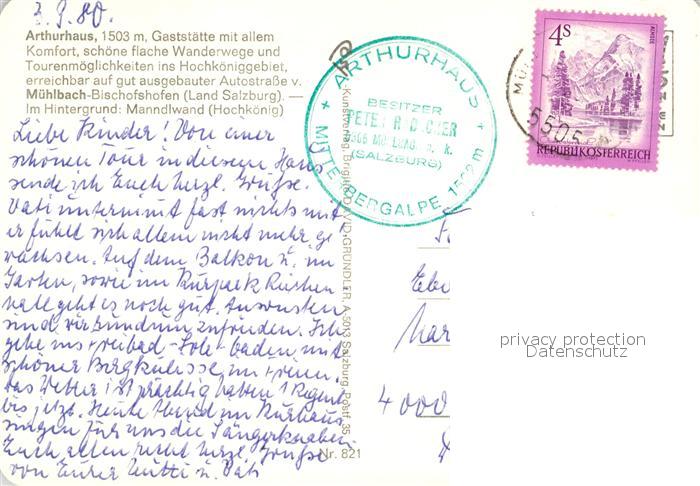 3.9.80.
Arthurhaus, 1503 m, Gaststätte mit allem
Komfort, schöne flache Wanderwege und
Tourenmöglichkeiten ins Hochköniggebiet,
erreichbar auf gut ausgebauter Autostraße v.
Mühlbach-Bischofshofen (Land Salzburg). —
Im Hintergrund: Manndlwand (Hochkönig)
Liebe Kinder! Von einer
schönen Tour in diesem Haus
sende ich Euch herzl. Grüße.
Vati unternimmt fast nichts mit
er fühlt sich allem nicht mehr ge
wachsen. Auf dem Balkon u. im
Garten, sowie im Kurpark
geht es noch gut. Ansonsten
sind wir zufrieden. Ich
gehe ins Freibad - Sole - baden, mit
schöner Bergkulisse
Das Wetter ist prächtig haben 1 Regent
bis jetzt. Heute Abend im Kurhaus
singen für uns die Sängerknaben
Euch allen recht herzl. Grüße
von Eurer Mutti u. Vati
ARTHURHAUS
BESITZER
PETER RADACHER
5505 MÜHLBACH a. H.
(SALZBURG)
MITTERBERGALPE, 1503 m
Kunstverlag, Brigitte DAVID-GRÜNDLER, A-5013 Salzburg, Postf. 35
Nr. 821
4S
ALMSEE
REPUBLIK ÖSTERREICH
MÜ
5505
Ebe
Mar
4000
privacy protection
Datenschutz